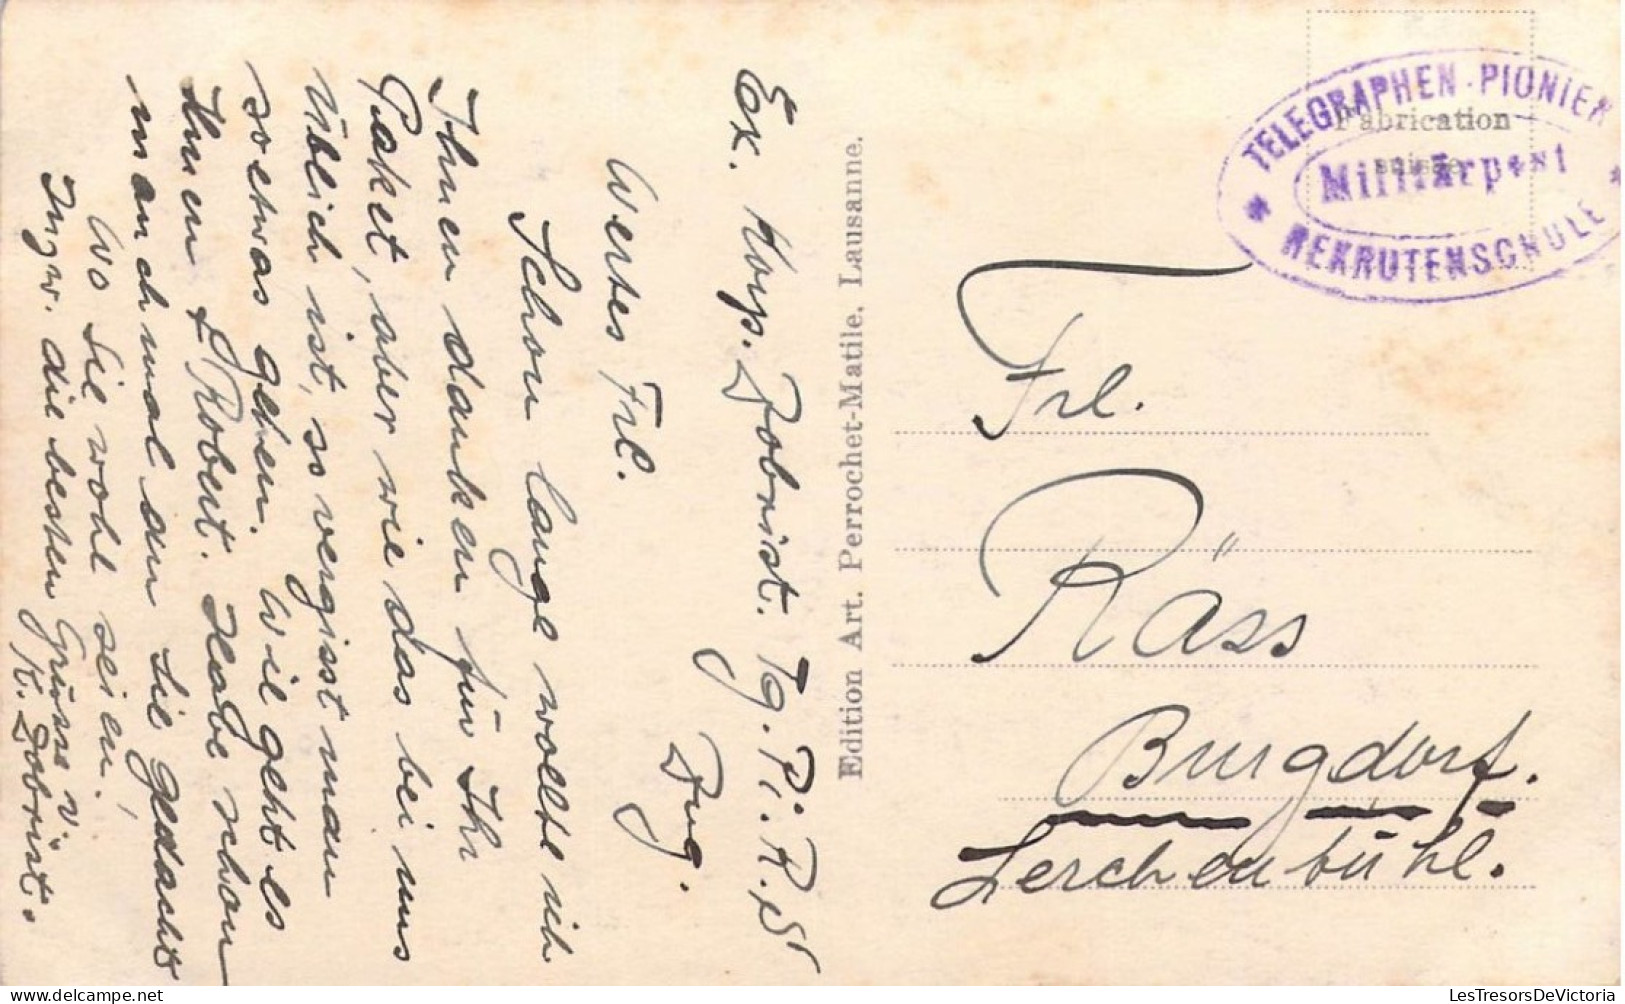 Ex. Korp. Zobrist. Tg. Pi. R. S
Bug.
Wertes Frl.
Schon lange wollte ich
Ihnen danken für Ihr
Paket, aber wie das bei uns
üblich ist, so vergisst man
soetwas gehen. Wie geht es
Ihnen & Robert. Habe schon
manchmal an Sie gedacht,
wo Sie wohl seien.
Inzw. die besten Grüsse v.
K. Zobrist.
Edition Art. Perrochet-Matile, Lausanne.
TELEGRAPHEN-PIONIER
Militärpost
* REKRUTENSCHULE *
Fabrication
suisse
Frl.
Räss
Burgdorf.
Lerchenbühl.
www.LesTresorsDeVictoria